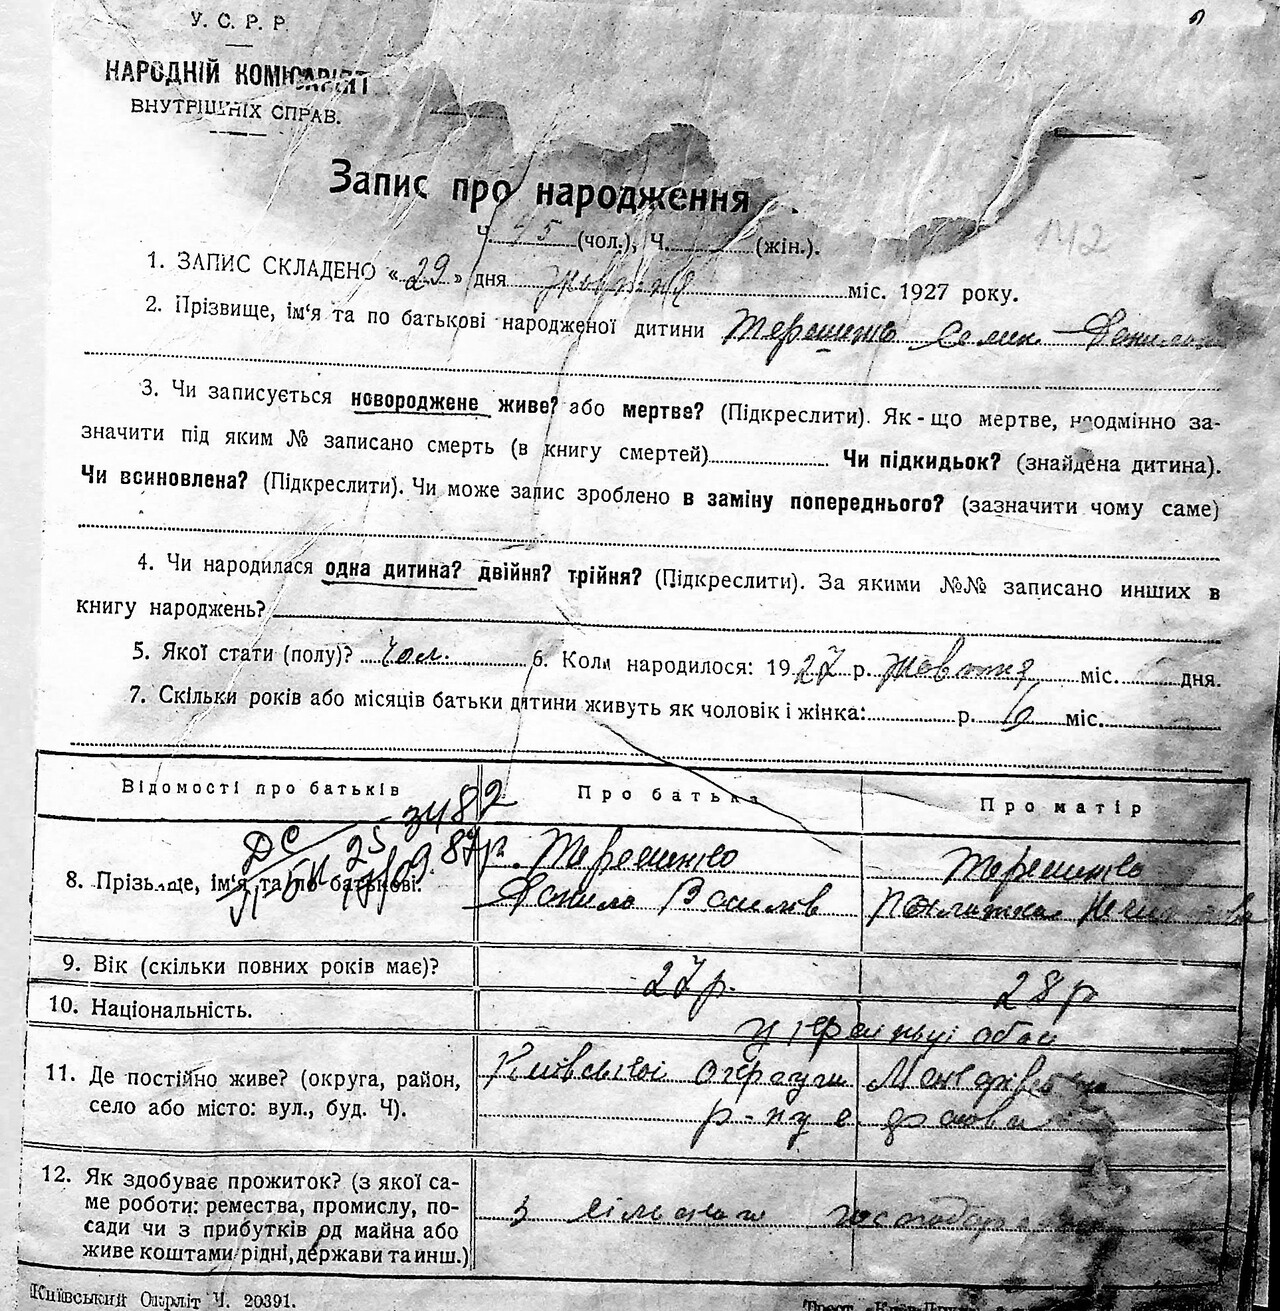 У. С. Р. Р.
НАРОДНІЙ КОМІСАРІЯТ
ВНУТРІШНІХ СПРАВ.
Запис про народження
Ч. 45 (чол.), Ч. (жін.).
142
1. ЗАПИС СКЛАДЕНО «29» дня жовтня міс. 1927 року.
2. Прізвище, ім'я та по батькові народженої дитини Терешенко Семен Данилов
3. Чи записується новороджене живе? або мертве? (Підкреслити). Як-що мертве, неодмінно за-
значити під яким № записано смерть (в книгу смертей) Чи підкидьок? (знайдена дитина).
Чи всиновлена? (Підкреслити). Чи може запис зроблено в заміну попереднього? (зазначити чому саме)
4. Чи народилася одна дитина? двійня? трійня? (Підкреслити). За якими №№ записано инших в
книгу народжень?
5. Якої стати (полу)? чол. 6. Коли народилося: 1927 р. жовтня міс. дня.
7. Скільки років або місяців батьки дитини живуть як чоловік і жінка: р. 10 міс.
Відомості про батьків Про батька Про матір
ДС 3482
25 09 87р.
8. Прізвище, ім'я та по батькові. Терешенко Терешенко
Данило Васильов
9. Вік (скільки повних років має)? 27р. 28р
10. Національність. українці обоє
11. Де постійно живе? (округа, район, Київської округи Макарівського
село або місто: вул., буд. Ч). р-ну с
12. Як здобуває прожиток? (з якої са-
ме роботи: ремества, промислу, по-
сади чи з прибутків од майна або з сільського господарства
живе коштами рідні, держави та инш.)
Київський Окрліт Ч. 20391.